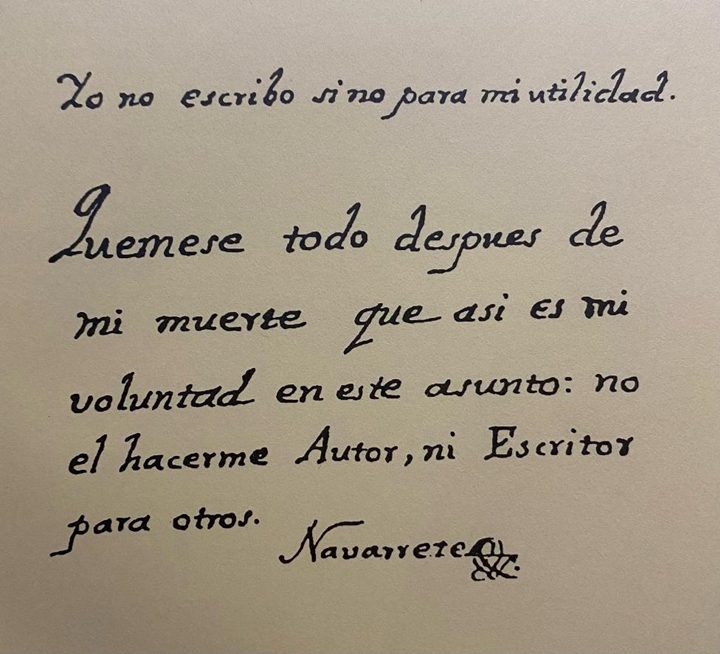 Yo no escribo sino para mi utilidad.
Quemese todo despues de
mi muerte que asi es mi
voluntad en este asunto: no
el hacerme Autor, ni Escritor
para otros.
Navarrete